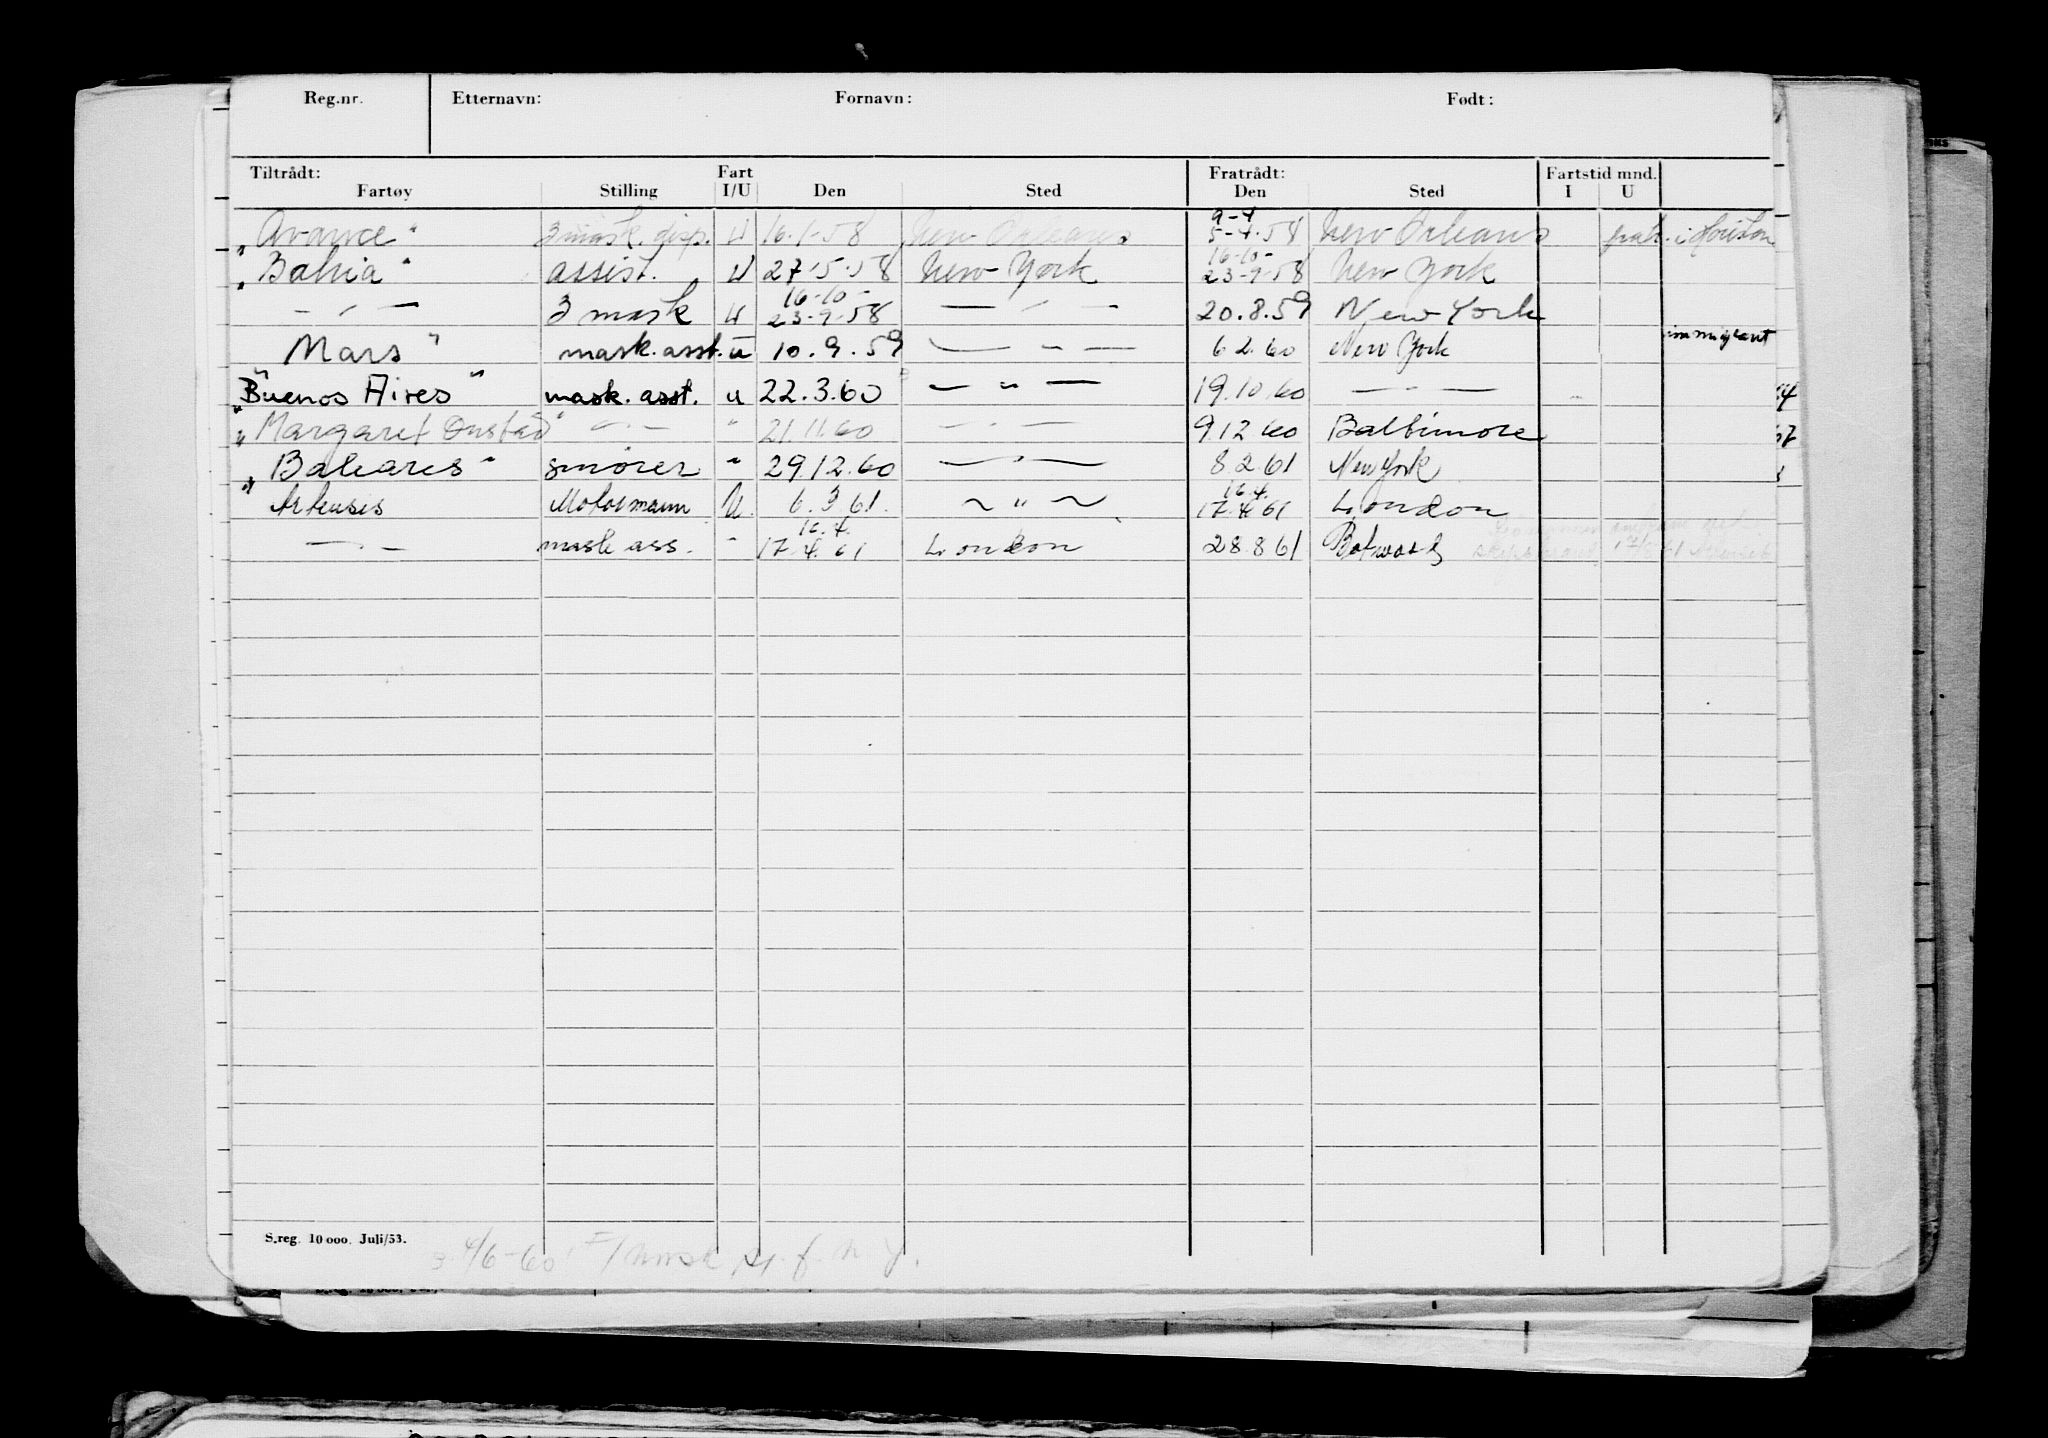 Reg.nr. Etternavn: Fornavn: Født:
Tiltrådt: Fart Fratrådt: Fartstid mnd.
Fartøy Stilling I/U Den Sted Den Sted I U
9-4
"Avance" 3 mask. disp. U 16.1.58 New Orleans 5-4.58 New Orleans i Houston
16-10-
"Bahia" assist. U 27.5.58 New York 23-9.58 New York
16-10-
— " — 3 mask U 23-9.58 — " — 20.8.59 New York
Mars" mask. asst. U 10.9.59 — " — 6 2.60 New York immigrant
"Buenos Aires" mask. asst. u 22.3.60 — " — 19.10.60 — " —
"Margaret Onstad" — " — " 21.11.60 — " — 9.12.60 Baltimore
"Baleares" smører " 29.12.60 — " — 8.2.61 New York
16.4.
Motormann U. 6.3.61. ~ " ~ 17.4.61 London
16.4.
— " — mask ass. " 17.4.61 London 28.8.61
S.reg. 10 000. Juli/53.
4/6-60